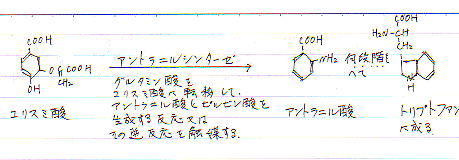 COOH
O-C-COOH
CH₂
OH
コリスミ酸
アントラニルシンターゼ
グルタミン酸を
コリスミ酸へ転移して、
アントラニル酸とピルビン酸を
生成する反応又は
その逆反応を触媒する。
COOH
NH₂
アントラニル酸
何段階も
へて
COOH
H₂N-CH
CH₂
トリプトファン
へ成る